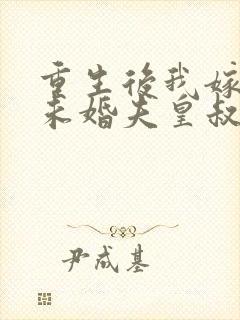 重生後我嫁
未婚夫皇叔
尹成基